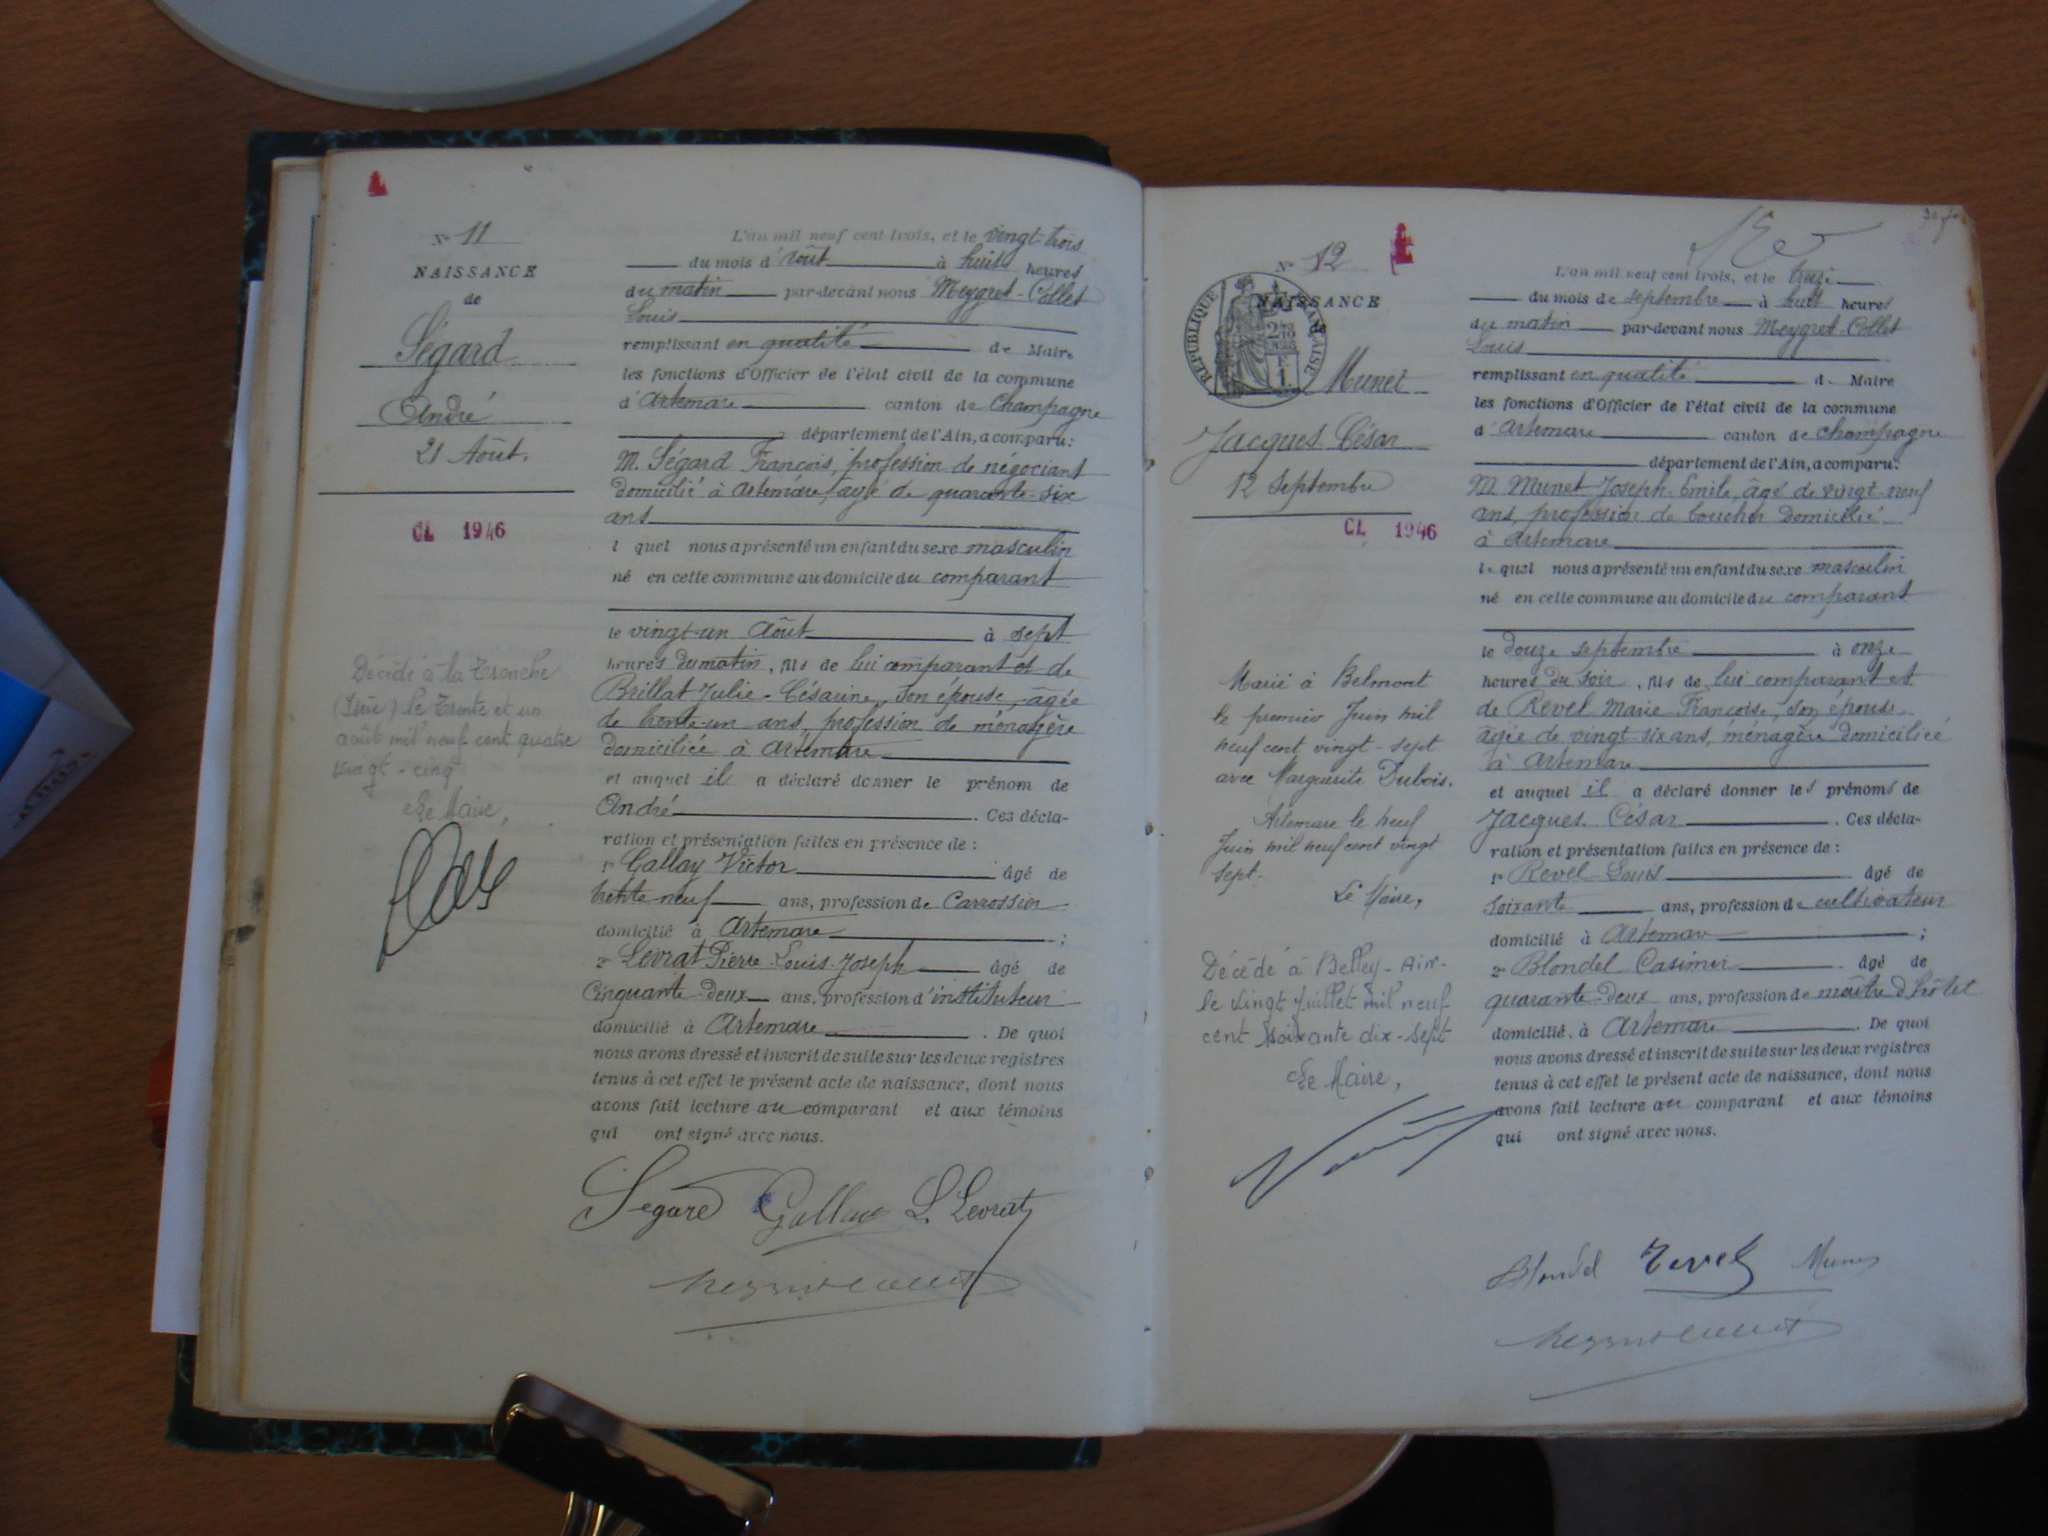 N° 11
NAISSANCE
de
Ségard
André
21 Août.
CL 1946
Décédé à la Tronche
(Isère) le Trente et un
août mil neuf cent quatre
vingt-cinq
Le Maire,
L'an mil neuf cent trois, et le vingt-trois
du mois d'Août à huit heures
du matin par-devant nous Meygret-Collet
Louis
remplissant en qualité de Maire
les fonctions d'Officier de l'état civil de la commune
d'Artemare canton de Champagne
département de l'Ain, a comparu:
M. Ségard François, profession de négociant
domicilié à Artemare, âgé de quarante-six
ans
l quel nous a présenté un enfant du sexe masculin
né en cette commune au domicile du comparant
le vingt-un Août à sept
heures du matin, fils de lui comparant et de
Brillat Julie-Césarine, son épouse, âgée
de trente-un ans, profession de ménagère
domiciliée à Artemare
et auquel il a déclaré donner le prénom de
André. Ces décla-
ration et présentation faites en présence de :
1° Gallay Victor âgé de
trente neuf ans, profession de Carrossier
domicilié à Artemare ;
2° Levrat Pierre-Louis-Joseph âgé de
cinquante-deux ans, profession d'instituteur
domicilié à Artemare. De quoi
nous avons dressé et inscrit de suite sur les deux registres
tenus à cet effet le présent acte de naissance, dont nous
avons fait lecture au comparant et aux témoins
qui ont signé avec nous.
Segard Gallay L. Levrat
N° 12
RÉPUBLIQUE FRANÇAISE
NAISSANCE
de
Munet
Jacques César
12 Septembre
CL 1946
Marié à Belmont
le premier Juin mil
neuf cent vingt-sept
avec Marguerite Dubois.
Artemare le neuf
Juin mil neuf cent vingt
sept.
Le Maire,
Décédé à Belley-Ain-
le vingt juillet mil neuf
cent soixante dix-sept
Le Maire,
L'an mil neuf cent trois, et le treize
du mois de septembre à huit heures
du matin par-devant nous Meygret-Collet
Louis
remplissant en qualité de Maire
les fonctions d'Officier de l'état civil de la commune
d'Artemare canton de Champagne
département de l'Ain, a comparu:
M. Munet Joseph-Emile, âgé de vingt-neuf
ans, profession de boucher domicilié
à Artemare
lequel nous a présenté un enfant du sexe masculin
né en cette commune au domicile du comparant
le douze septembre à onze
heures du soir, fils de lui comparant et
de Revel Marie Françoise, son épouse,
âgée de vingt-six ans, ménagère domiciliée
à Artemare
et auquel il a déclaré donner les prénoms de
Jacques César. Ces décla-
ration et présentation faites en présence de :
1° Revel Louis âgé de
soixante ans, profession de cultivateur
domicilié à Artemare ;
2° Blondel Casimir âgé de
quarante-deux ans, profession de maître d'hôtel
domicilié à Artemare. De quoi
nous avons dressé et inscrit de suite sur les deux registres
tenus à cet effet le présent acte de naissance, dont nous
avons fait lecture au comparant et aux témoins
qui ont signé avec nous.
Blondel Revel Munet